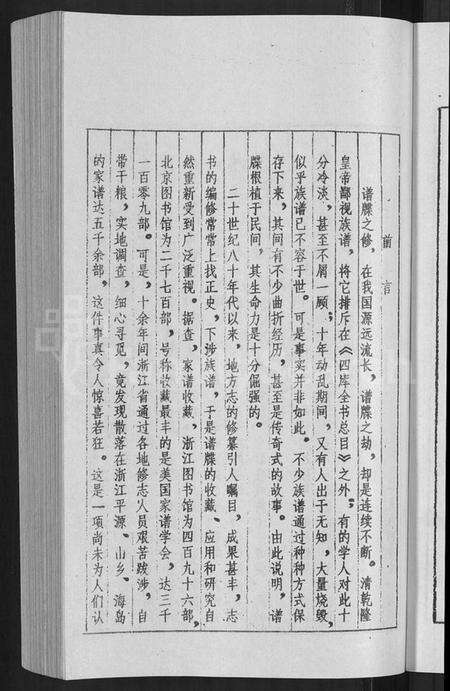 前言
谱牒之修，在我国源远流长，谱牒之劫，却是连续不断。清乾隆
皇帝鄙视族谱，将它排斥在《四库全书总目》之外；有的学人对此十
分冷淡，甚至不屑一顾；十年动乱期间，又有人出于无知，大量烧毁，
似乎族谱已不容于世。可是事实并非如此。不少族谱通过种种方式保
存下来，其间有不少曲折经历，甚至是传奇式的故事。由此说明，谱
牒根植于民间，其生命力是十分倔强的。
二十世纪八十年代以来，地方志的修纂引人瞩目，成果甚丰，志
书的编修常常上找正史，下涉族谱，于是谱牒的收藏、应用和研究自
然重新受到广泛重视。据查，家谱收藏，浙江图书馆为四百九十六部，
北京图书馆为二千七百部，号称收藏最丰的是美国家谱学会，达三千
一百零九部。可是，十余年间浙江省通过各地修志人员艰苦跋涉，自
带干粮，实地调查，细心寻觅，竟发现散落在浙江平源、山乡、海岛
的家谱达五千余部，这件事真令人惊喜若狂。这是一项尚未为人们认